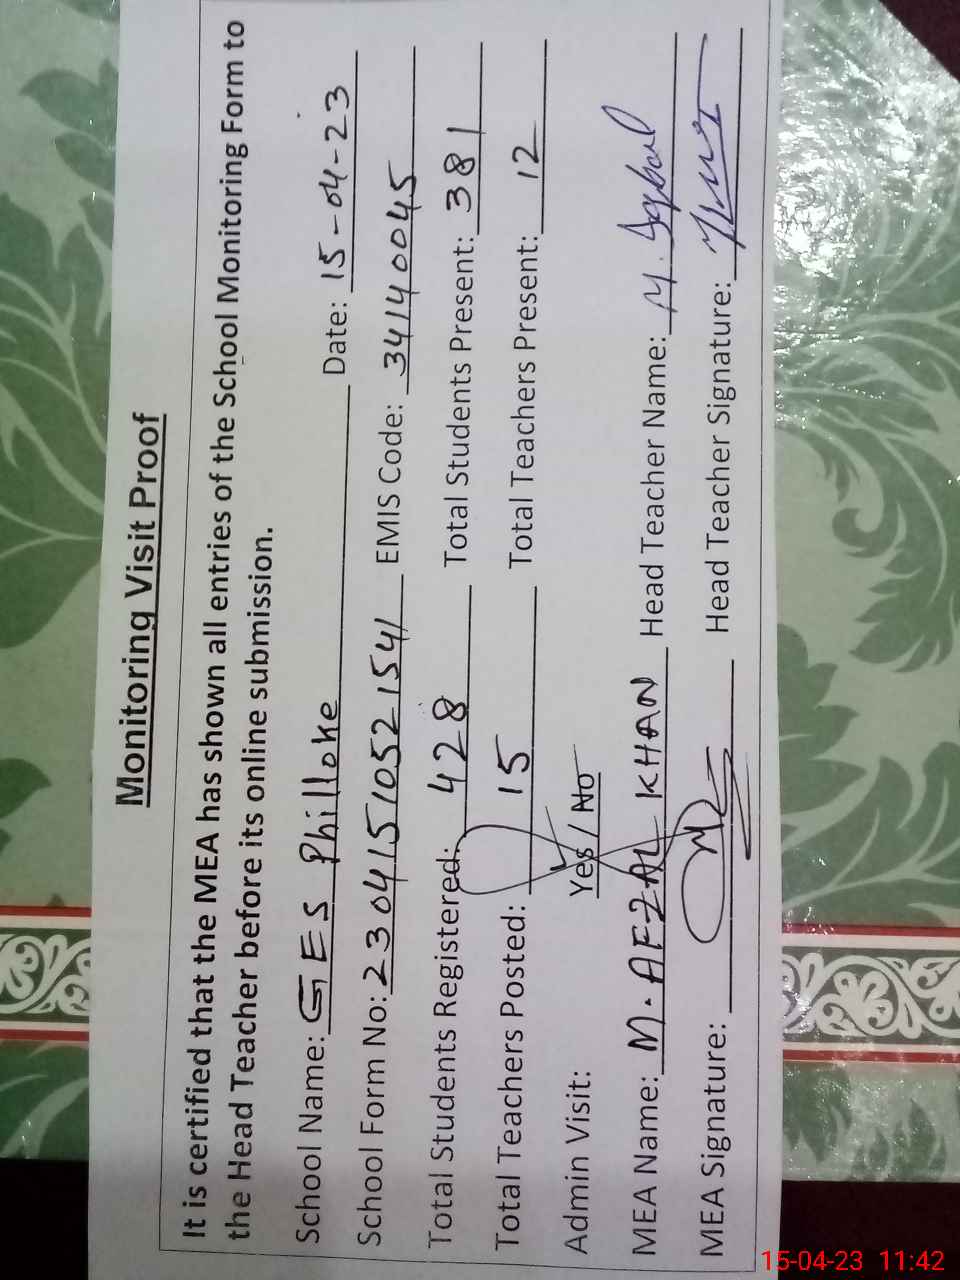 Monitoring Visit Proof
It is certified that the MEA has shown all entries of the School Monitoring Form to
the Head Teacher before its online submission.
School Name: GES Philloke Date: 15-04-23
School Form No: 23041510521541 EMIS Code: 34140045
Total Students Registered: 428 Total Students Present: 381
Total Teachers Posted: 15 Total Teachers Present: 12
Admin Visit: Yes / No
MEA Name: M. AFZAL KHAN Head Teacher Name: M. Iqbal
MEA Signature: Head Teacher Signature:
15-04-23 11:42